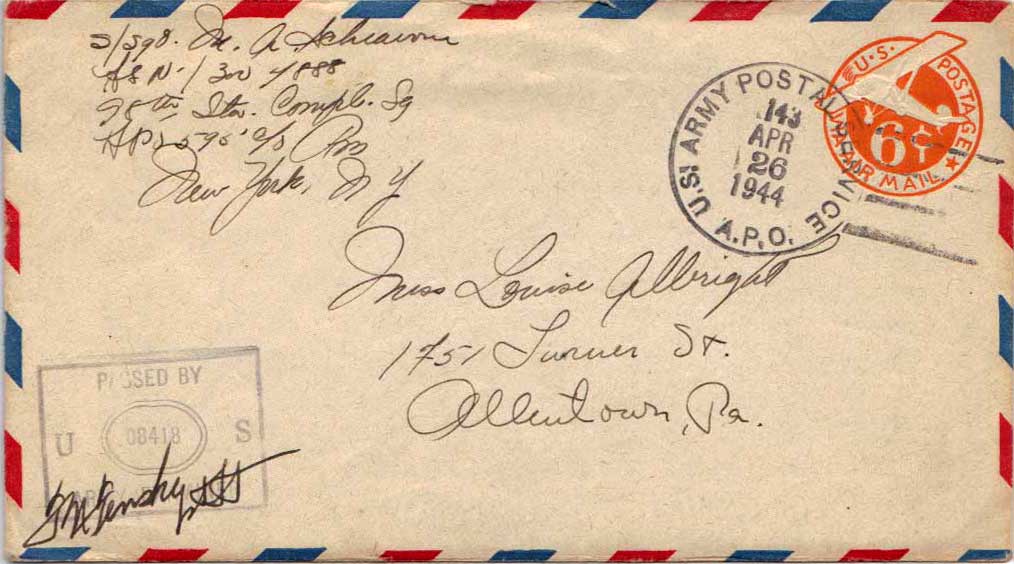 S/Sgt. M. A.
98th Sta. Compl. Sq
APO 595 c/o Pm
New York, N Y
U.S. ARMY POSTAL SERVICE
143
APR
26
1944
A.P.O.
U.S. POSTAGE
6¢
VIA AIR MAIL
Miss Louise Albright
1751 Turner St.
Allentown, Pa.
PASSED BY
U 08418 S
ARMY